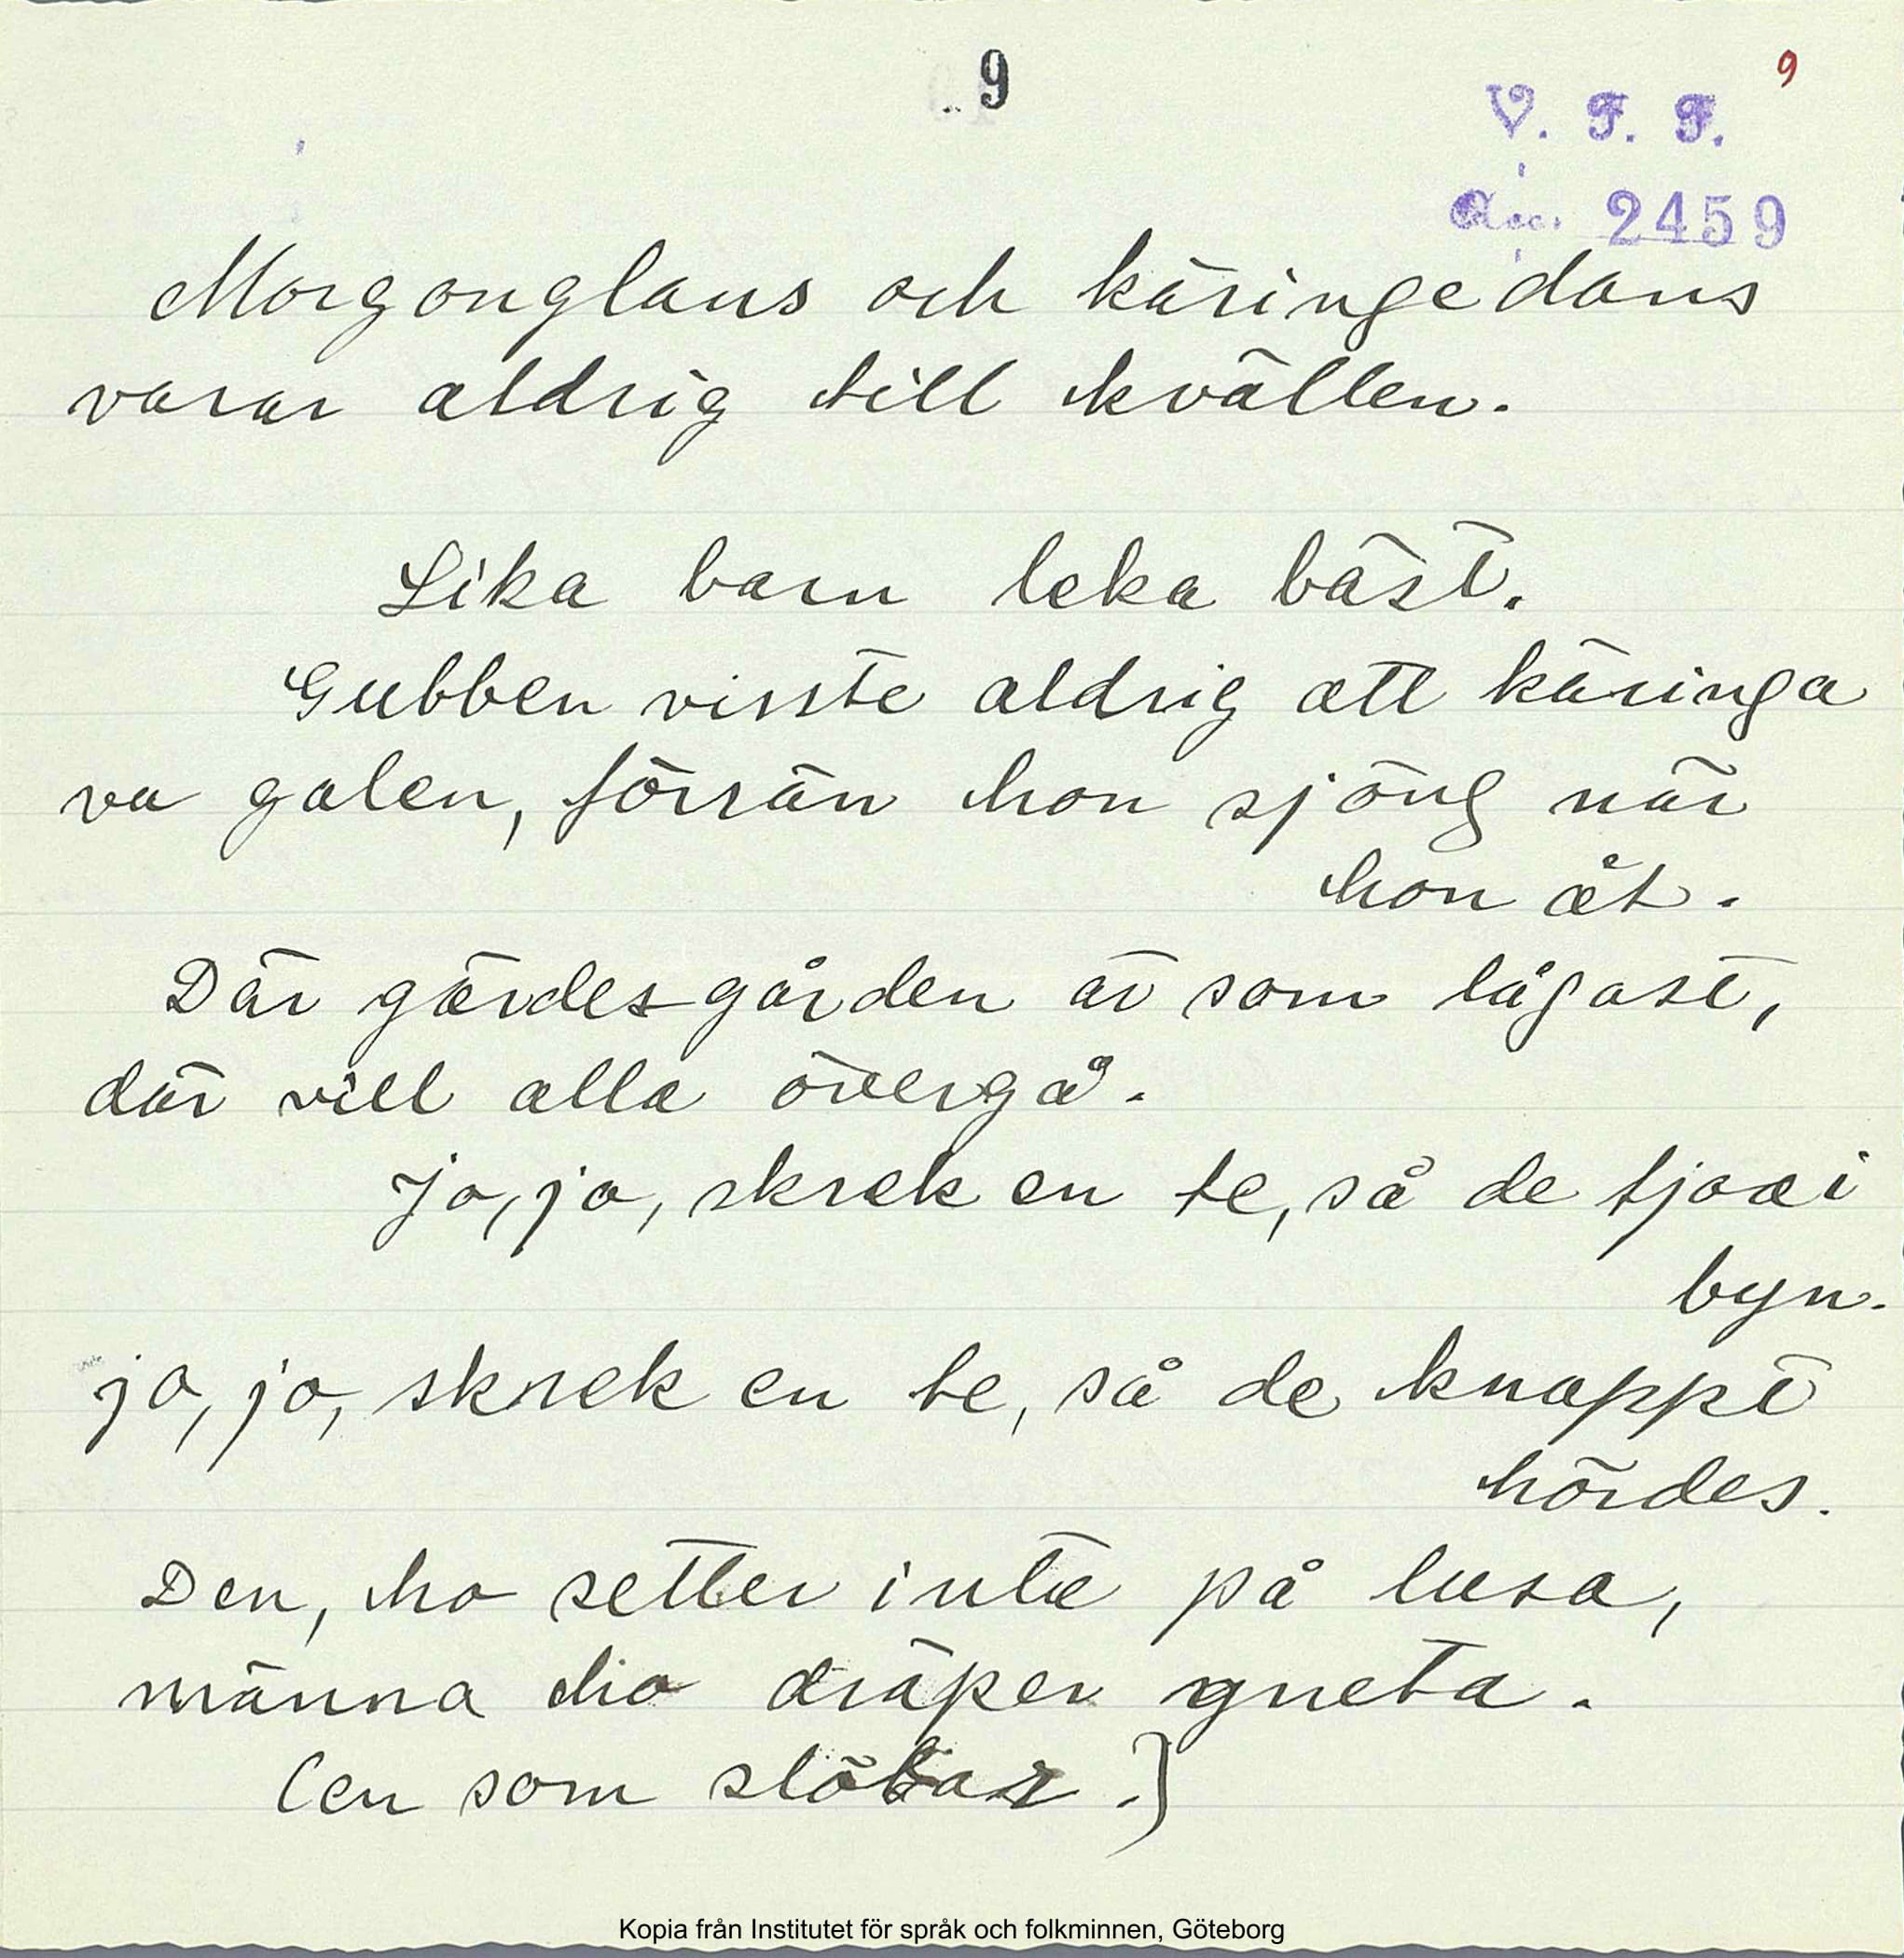 9
9
V. F. F.
Acc. 2459
Morgonglans och käringedans
varar aldrig till kvällen.
Lika barn leka bäst.
Gubben visste aldrig att käringa
va galen, förrän hon sjöng när
hon åt.
Där gärdesgården är som lågast,
där vill alla övergå.
Jo, jo, skrek en te, så de tjoa i
byn.
jo, jo, skrek en te, så de knappt
hördes.
Den, ho setter inte på lusa,
männa ho dräper gneta.
(en som slöbar.)
Kopia från Institutet för språk och folkminnen, Göteborg